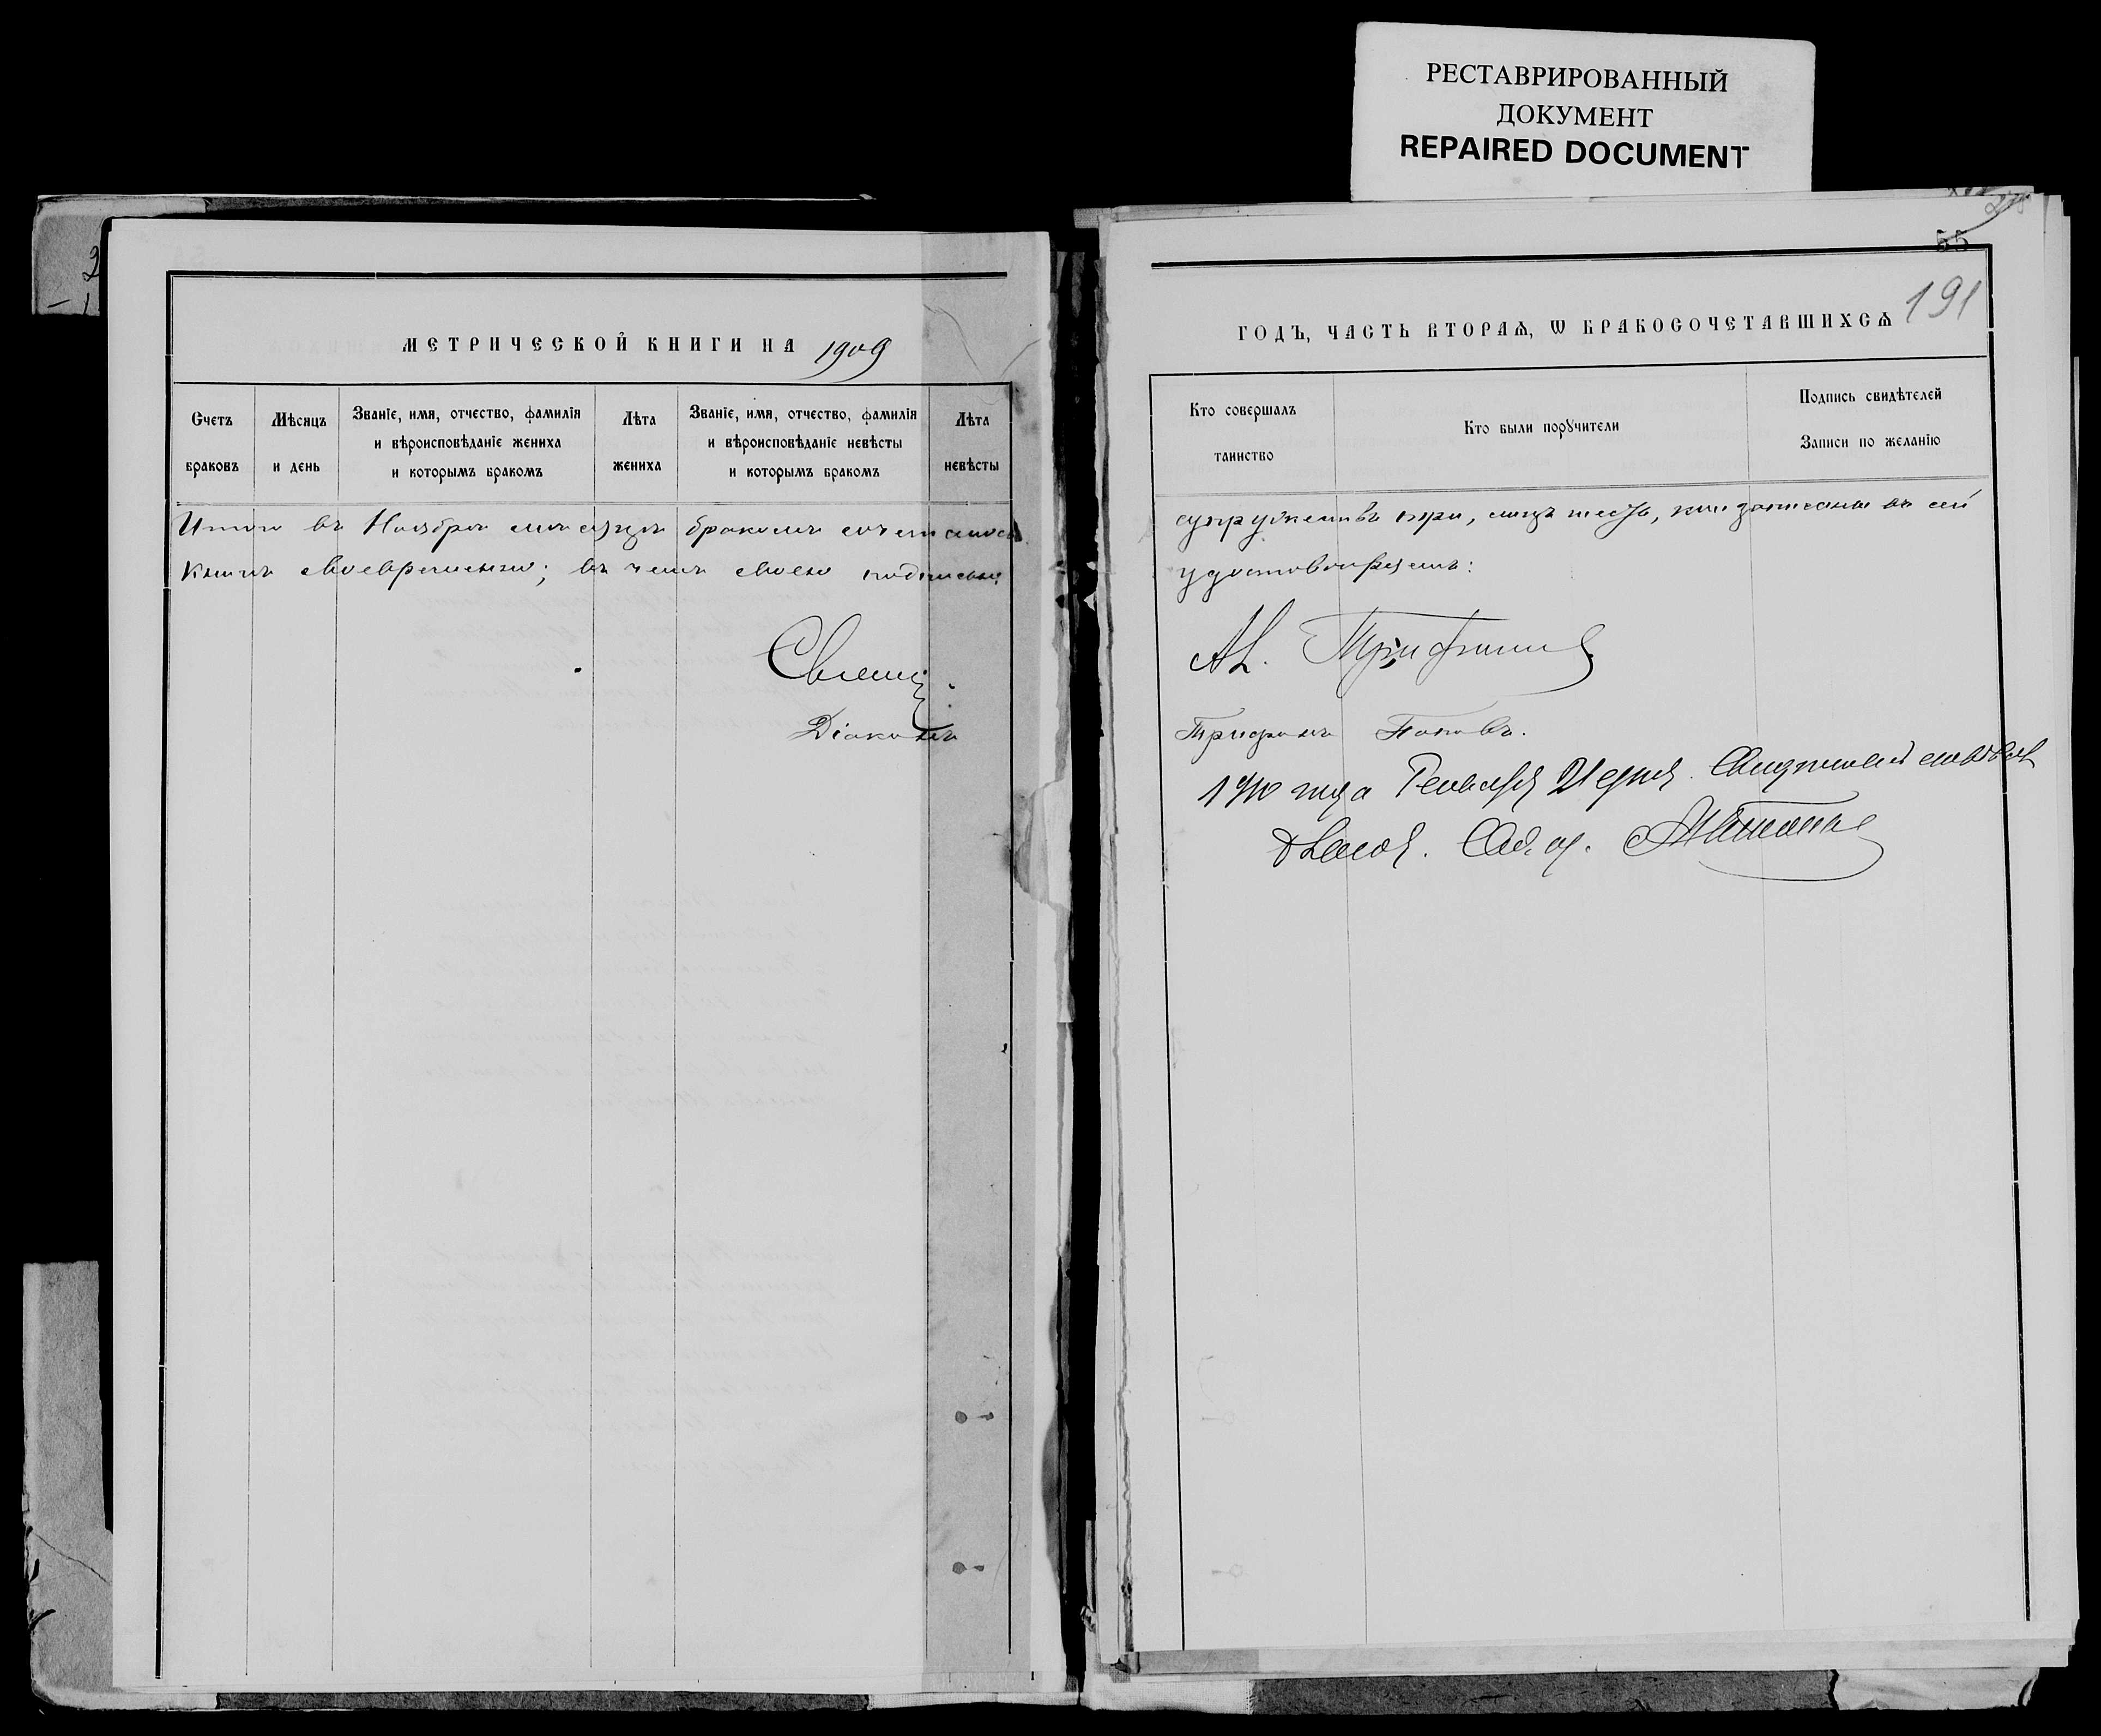 РЕСТАВРИРОВАННЫЙ
ДОКУМЕНТ
REPAIRED DOCUMENT
МЕТРИЧЕСКОЙ КНИГИ НА 1909
Счетъ браковъ
Мѣсяцъ и день
Званіе, имя, отчество, фамилія и вѣроисповѣданіе жениха и которымъ бракомъ
Лѣта жениха
Званіе, имя, отчество, фамилія и вѣроисповѣданіе невѣсты и которымъ бракомъ
Лѣта невѣсты
Итого въ Ноябрѣ мѣсяцѣ бракомъ сочеталось
книгѣ своевременно; въ чемъ своею подписью
Свящ:
Діаконъ
55
191
ГОДЪ, ЧАСТЬ ВТОРАѦ, Ѡ БРАКОСОЧЕТАВШИХСѦ
Кто совершалъ таинство
Кто были порꙋчители
Подпись свидѣтелей Записи по желанію
супружествъ три, лицъ шесть, кои записаны въ сей
удостовѣряемъ:
Трифонъ Поповъ.
1910 года Генваря 21 дня.